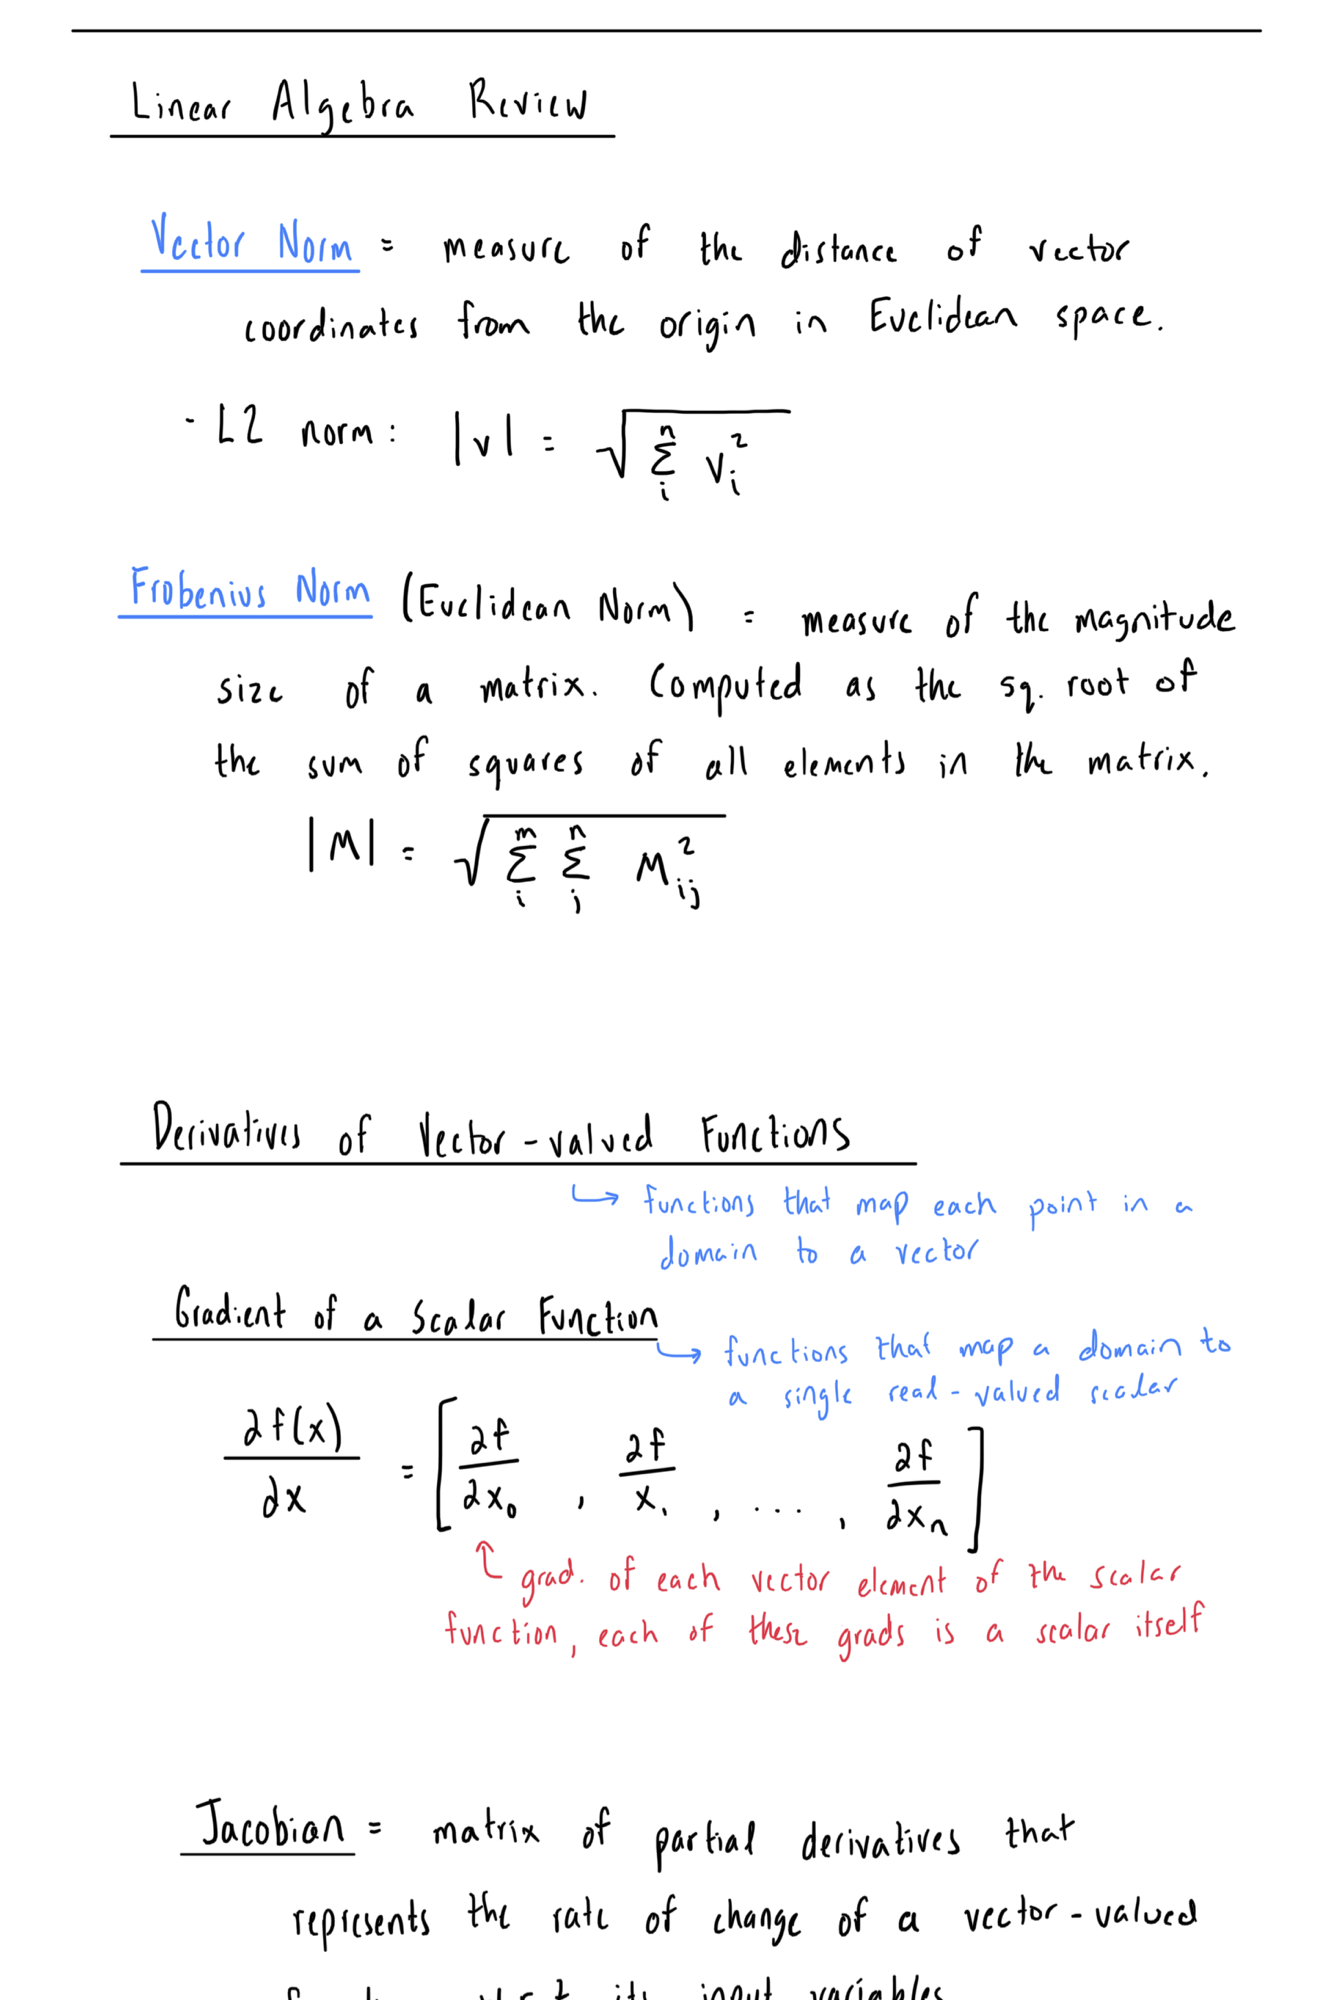 Linear Algebra Review
Vector Norm = measure of the distance of vector
coordinates from the origin in Euclidean space.
- L2 norm: |v| = √(∑_i^n v_i^2)
Frobenius Norm (Euclidean Norm) = measure of the magnitude
size of a matrix. Computed as the sq. root of
the sum of squares of all elements in the matrix.
|M| = √(∑_i^m ∑_j^n M_ij^2)
Derivatives of Vector-valued Functions
↳ functions that map each point in a
domain to a vector
Gradient of a Scalar Function
↳ functions that map a domain to
a single real-valued scalar
∂f(x)/∂x = [∂f/∂x_0, ∂f/x_1, ..., ∂f/∂x_n]
grad. of each vector element of the scalar
function, each of these grads is a scalar itself
Jacobian = matrix of partial derivatives that
represents the rate of change of a vector-valued
its input variables